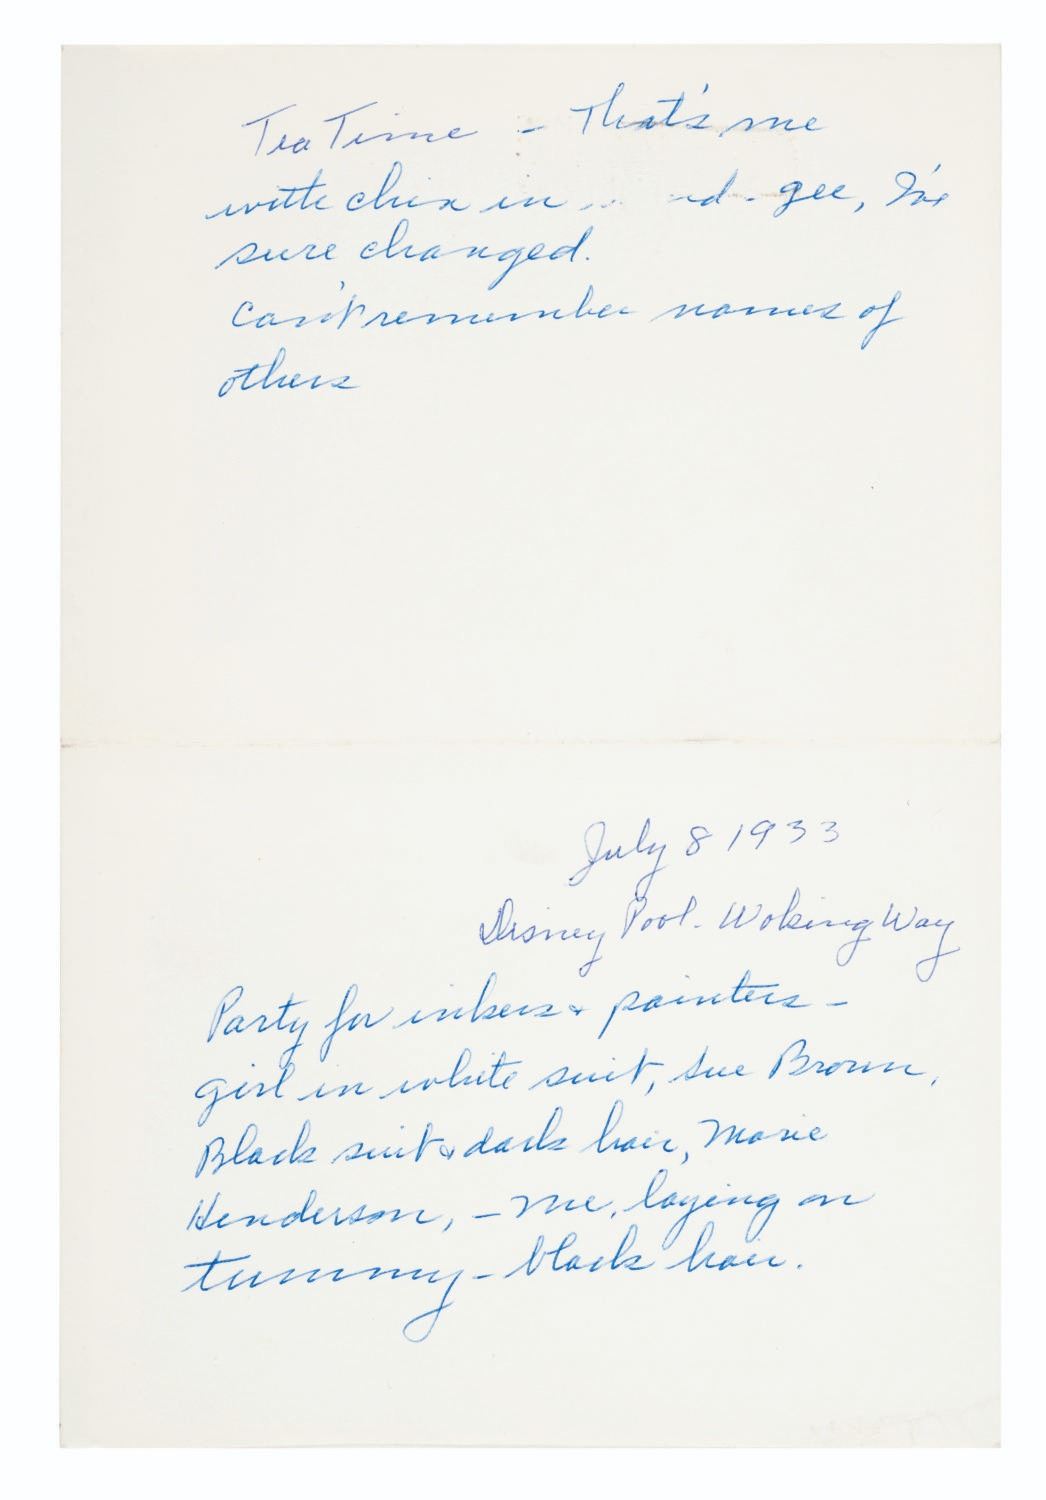 Tea Time - That's me
with chin in gee, I've
sure changed.
Can't remember names of
others
July 8 1933
Disney Pool - Woking Way
Party for inkers & painters -
girl in white suit, Sue Brown,
Black suit & dark hair, Marie
Henderson, - me, laying on
tummy - black hair.